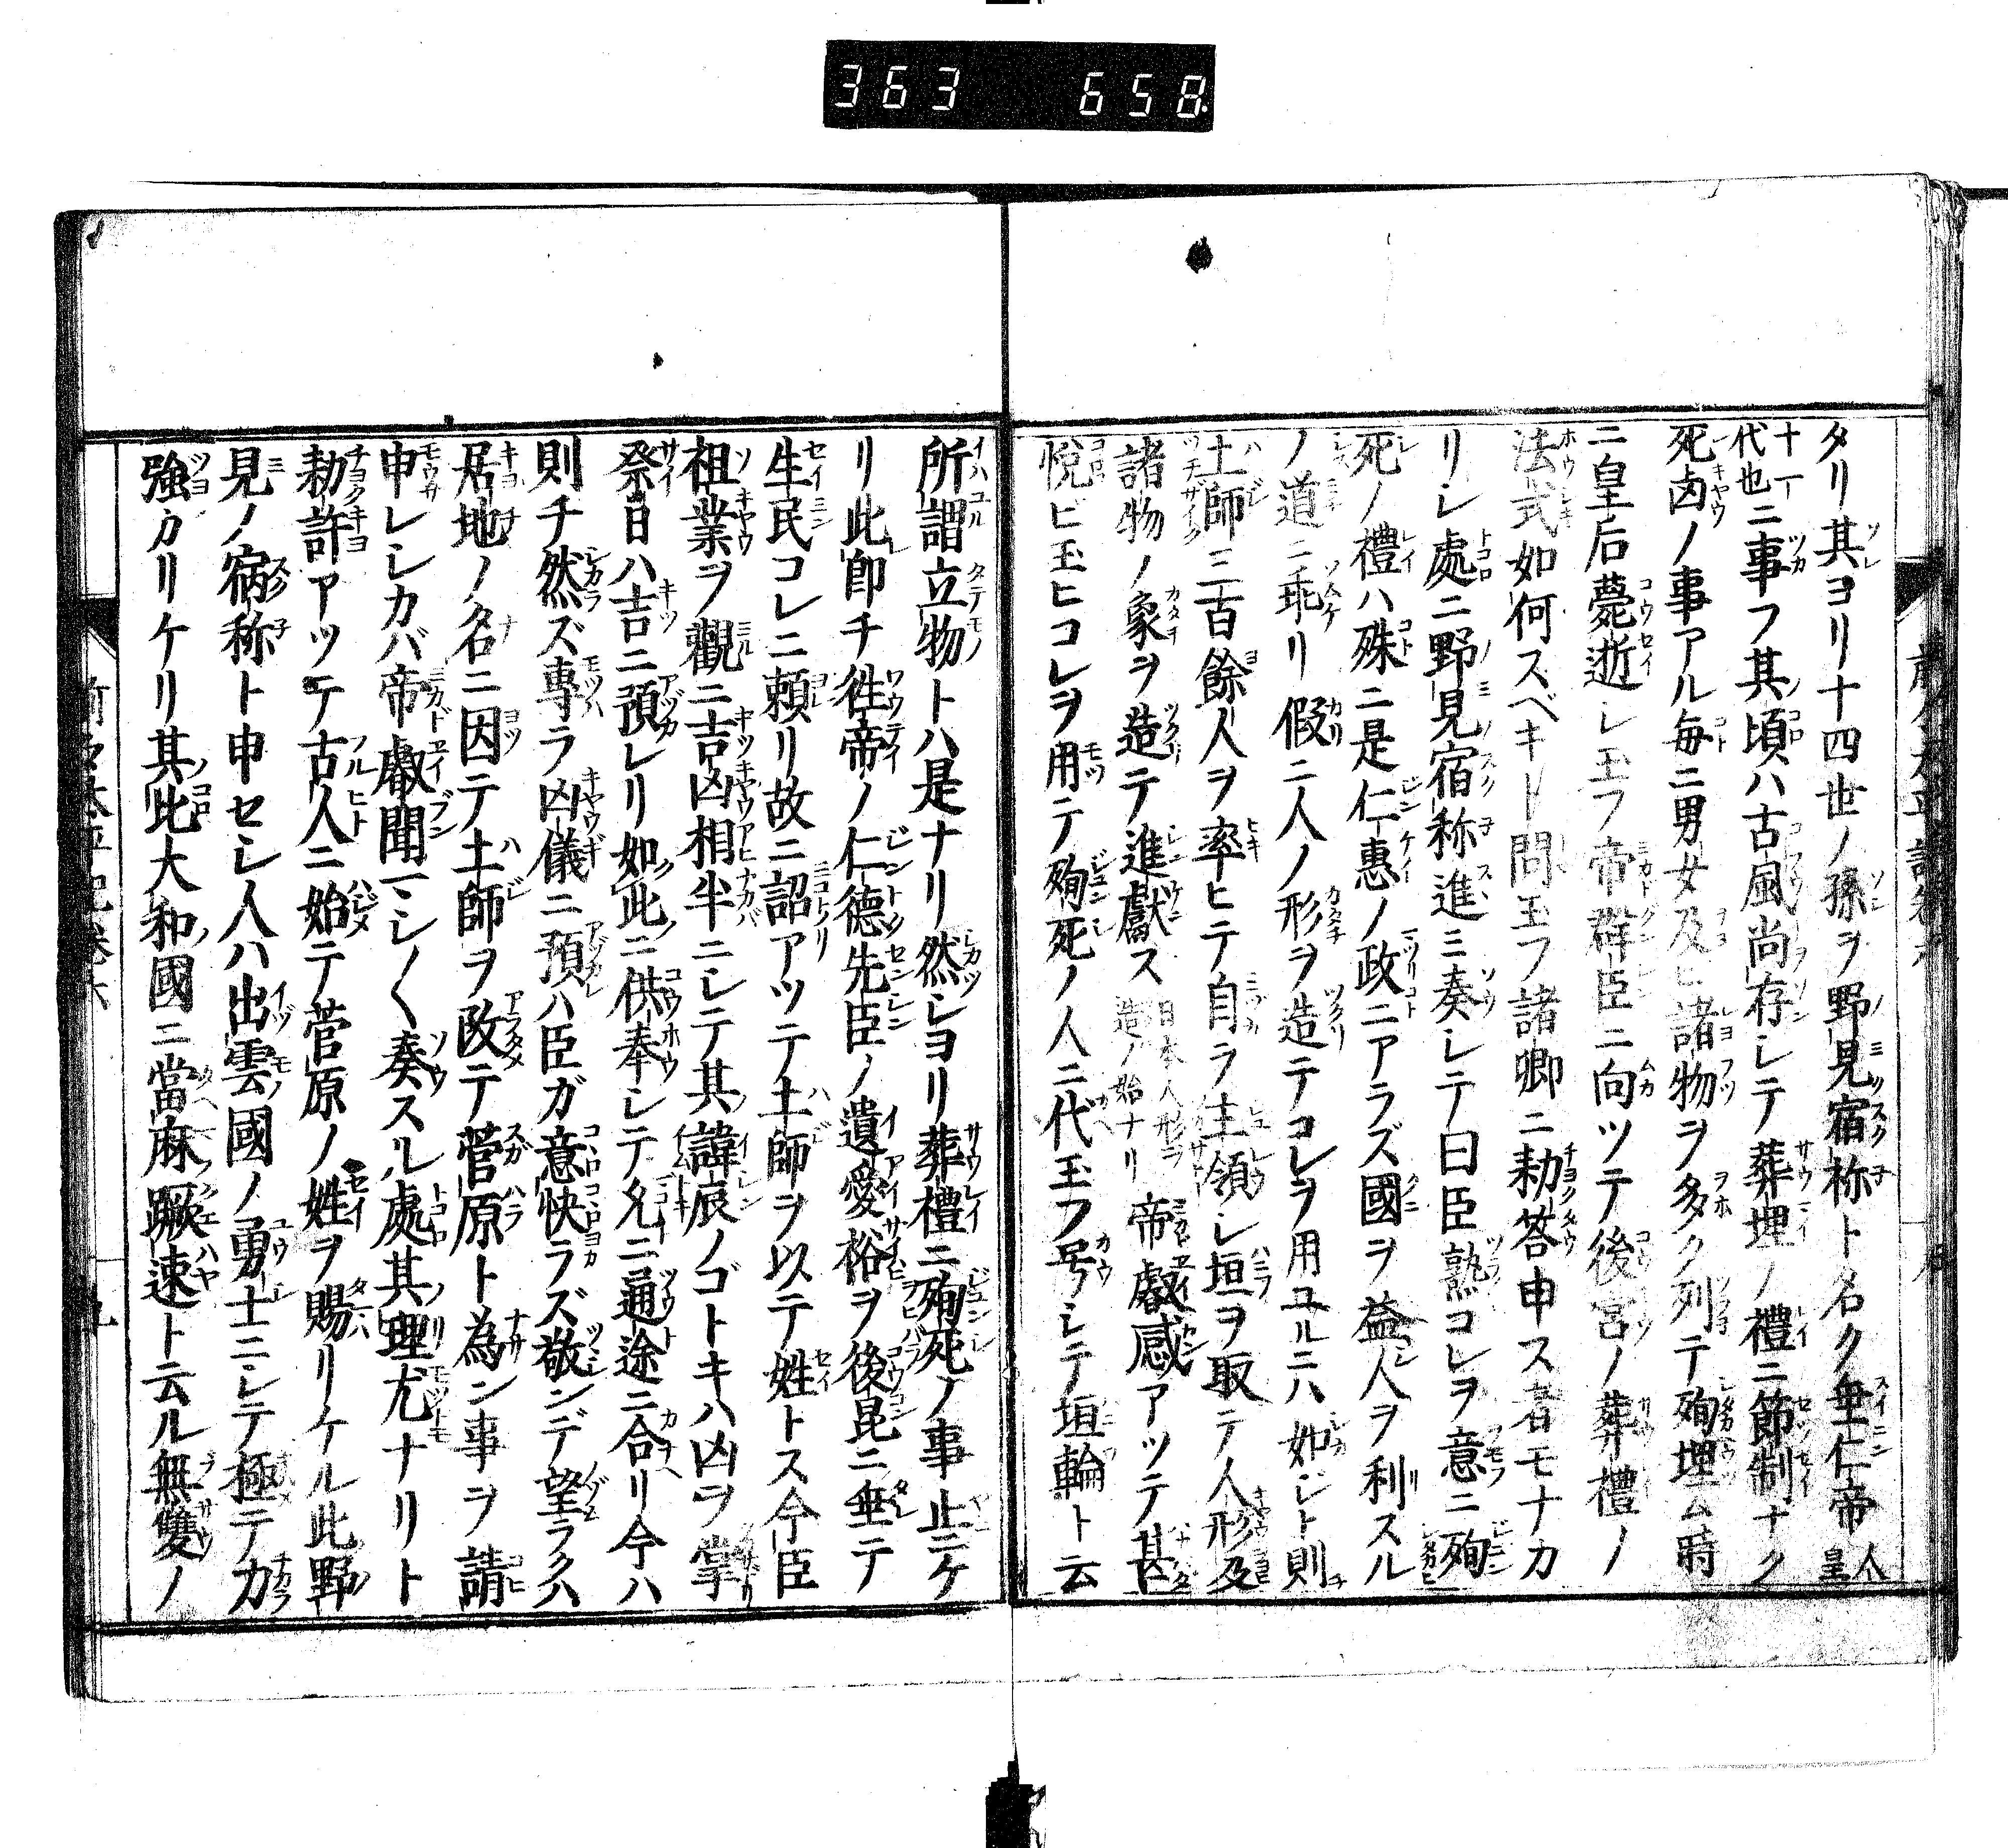 363 658
タリ其ヨリ十四世ノ孫ヲ野見宿祢ト名ク垂仁帝人皇
十一代也ニ事フ其頃ハ古風尚存シテ葬埋ノ禮ニ節制ナク
死凶ノ事アル毎ニ男女及ヒ諸物ヲ多ク列テ殉埋ム時
ニ皇后薨逝シ玉フ帝群臣ニ向ツテ後宮ノ葬禮ノ
法式如何スベキト問玉フ諸卿ニ勅答申ス者モナカ
リシ處ニ野見宿祢進ミ奏シテ曰臣熟コレヲ意ニ殉
死ノ禮ハ殊ニ是仁惠ノ政ニアラズ國ヲ益人ヲ利スル
ノ道ニ乖リ假ニ人ノ形ヲ造テコレヲ用ユルニハ如ジト則
土師三百餘人ヲ率ヒテ自ラ主領シ垣ヲ取テ人形及
諸物ノ象ヲ造テ進獻ス日本人形ヲ造ノ始ナリ帝叡感アツテ甚
悅ビ玉ヒコレヲ用テ殉死ノ人ニ代玉フ号シテ垣輪ト云
所謂立物トハ是ナリ然シヨリ葬禮ニ殉死ノ事止ニケ
リ此即チ徃帝ノ仁德先臣ノ遺愛裕ヲ後昆ニ垂テ
生民コレニ頼リ故ニ詔アツテ土師ヲ以テ姓トス今臣
祖業ヲ觀ニ吉凶相半ニシテ其諱辰ノゴトキハ凶ヲ掌
祭日ハ吉ニ預レリ如此ニ供奉シテ允ニ通途ニ合リ今ハ
則チ然ラズ專ラ凶儀ニ預ハ臣ガ意快ラズ敬ンデ望ラクハ
居地ノ名ニ因テ土師ヲ改テ菅原ト為ン事ヲ請
申シシカバ帝叡聞マシ〳〵奏スル處其理尤ナリト
勅許アツテ古人ニ始テ菅原ノ姓ヲ賜リケル此野
見ノ宿祢ト申セシ人ハ出雲國ノ勇士ニシテ極テ力
強カリケリ其比大和國ニ當麻蹶速ト云ル無雙ノ